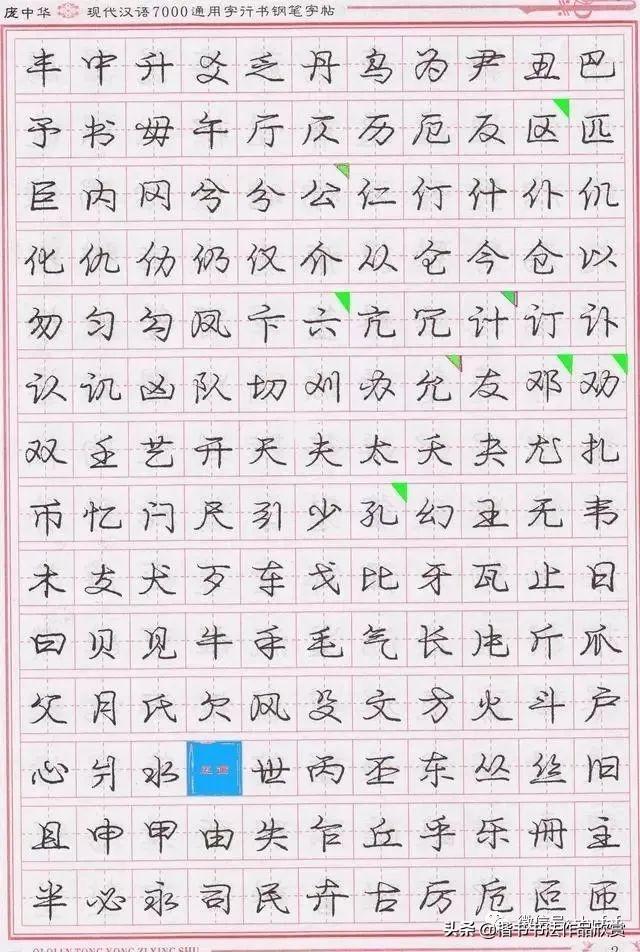 庞中华 现代汉语7000通用字行书钢笔字帖
丰中升爻乏丹乌为尹丑巴
予书毋午厅仄历厄反区匹
巨内冈兮分公仁仃什仆仉
化仇仂仍仅介从仑今仓以
勿匀勾凤卞六亢冗计订讣
认讥凶队切刈办允友邓劝
双壬艺开天夫太夭夬尤扎
币忆闩尺引少孔幻王无韦
木支犬歹车戈比牙瓦止日
曰贝见牛手毛气长片斤爪
父月氏欠风殳文方火斗户
心爿水五画世丙丕东丛丝旧
且申甲由失乍丘乎乐册主
半必永司民卉古厉卮叵匝
QI QIAN TONG YONG ZI XING SHU
头条 @楷书书法作品欣赏